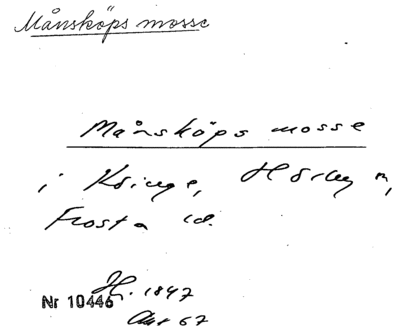 Månsköps mosse
Månsköps mosse
i Köinge, Hörby sn,
Frosta hd.
H. 1847
Nr 10446
Akt 67